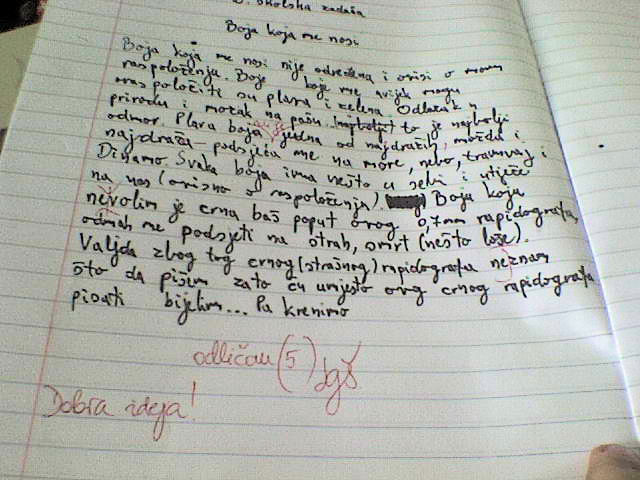 školska zadaća
Boja koja me nosi
Boja koja me nosi nije određena i ovisi o mom
raspoloženju. Boje koje me uvijek mogu
oraspoložiti su plava i zelena. Odlazak u
prirodu i mozak na pašu to je najbolji
odmor. Plava boja jedna od najdražih, možda i
najdraža podsjeća me na more, nebo, tramvaj i
Dinamo. Svaka boja ima nešto u sebi i utječe
na nas (ovisno o raspoloženju). Boja koju
nevolim je crna baš poput ovog 0,7mm rapidografa,
odmah me podsjeti na strah, smrt (nešto loše).
Valjda zbog tog crnog (strašnog) rapidografa neznam
što da pišem zato ću umjesto ovog crnog rapidografa
pisati bijelim... Pa krenimo
odličan (5)
Dobra ideja!